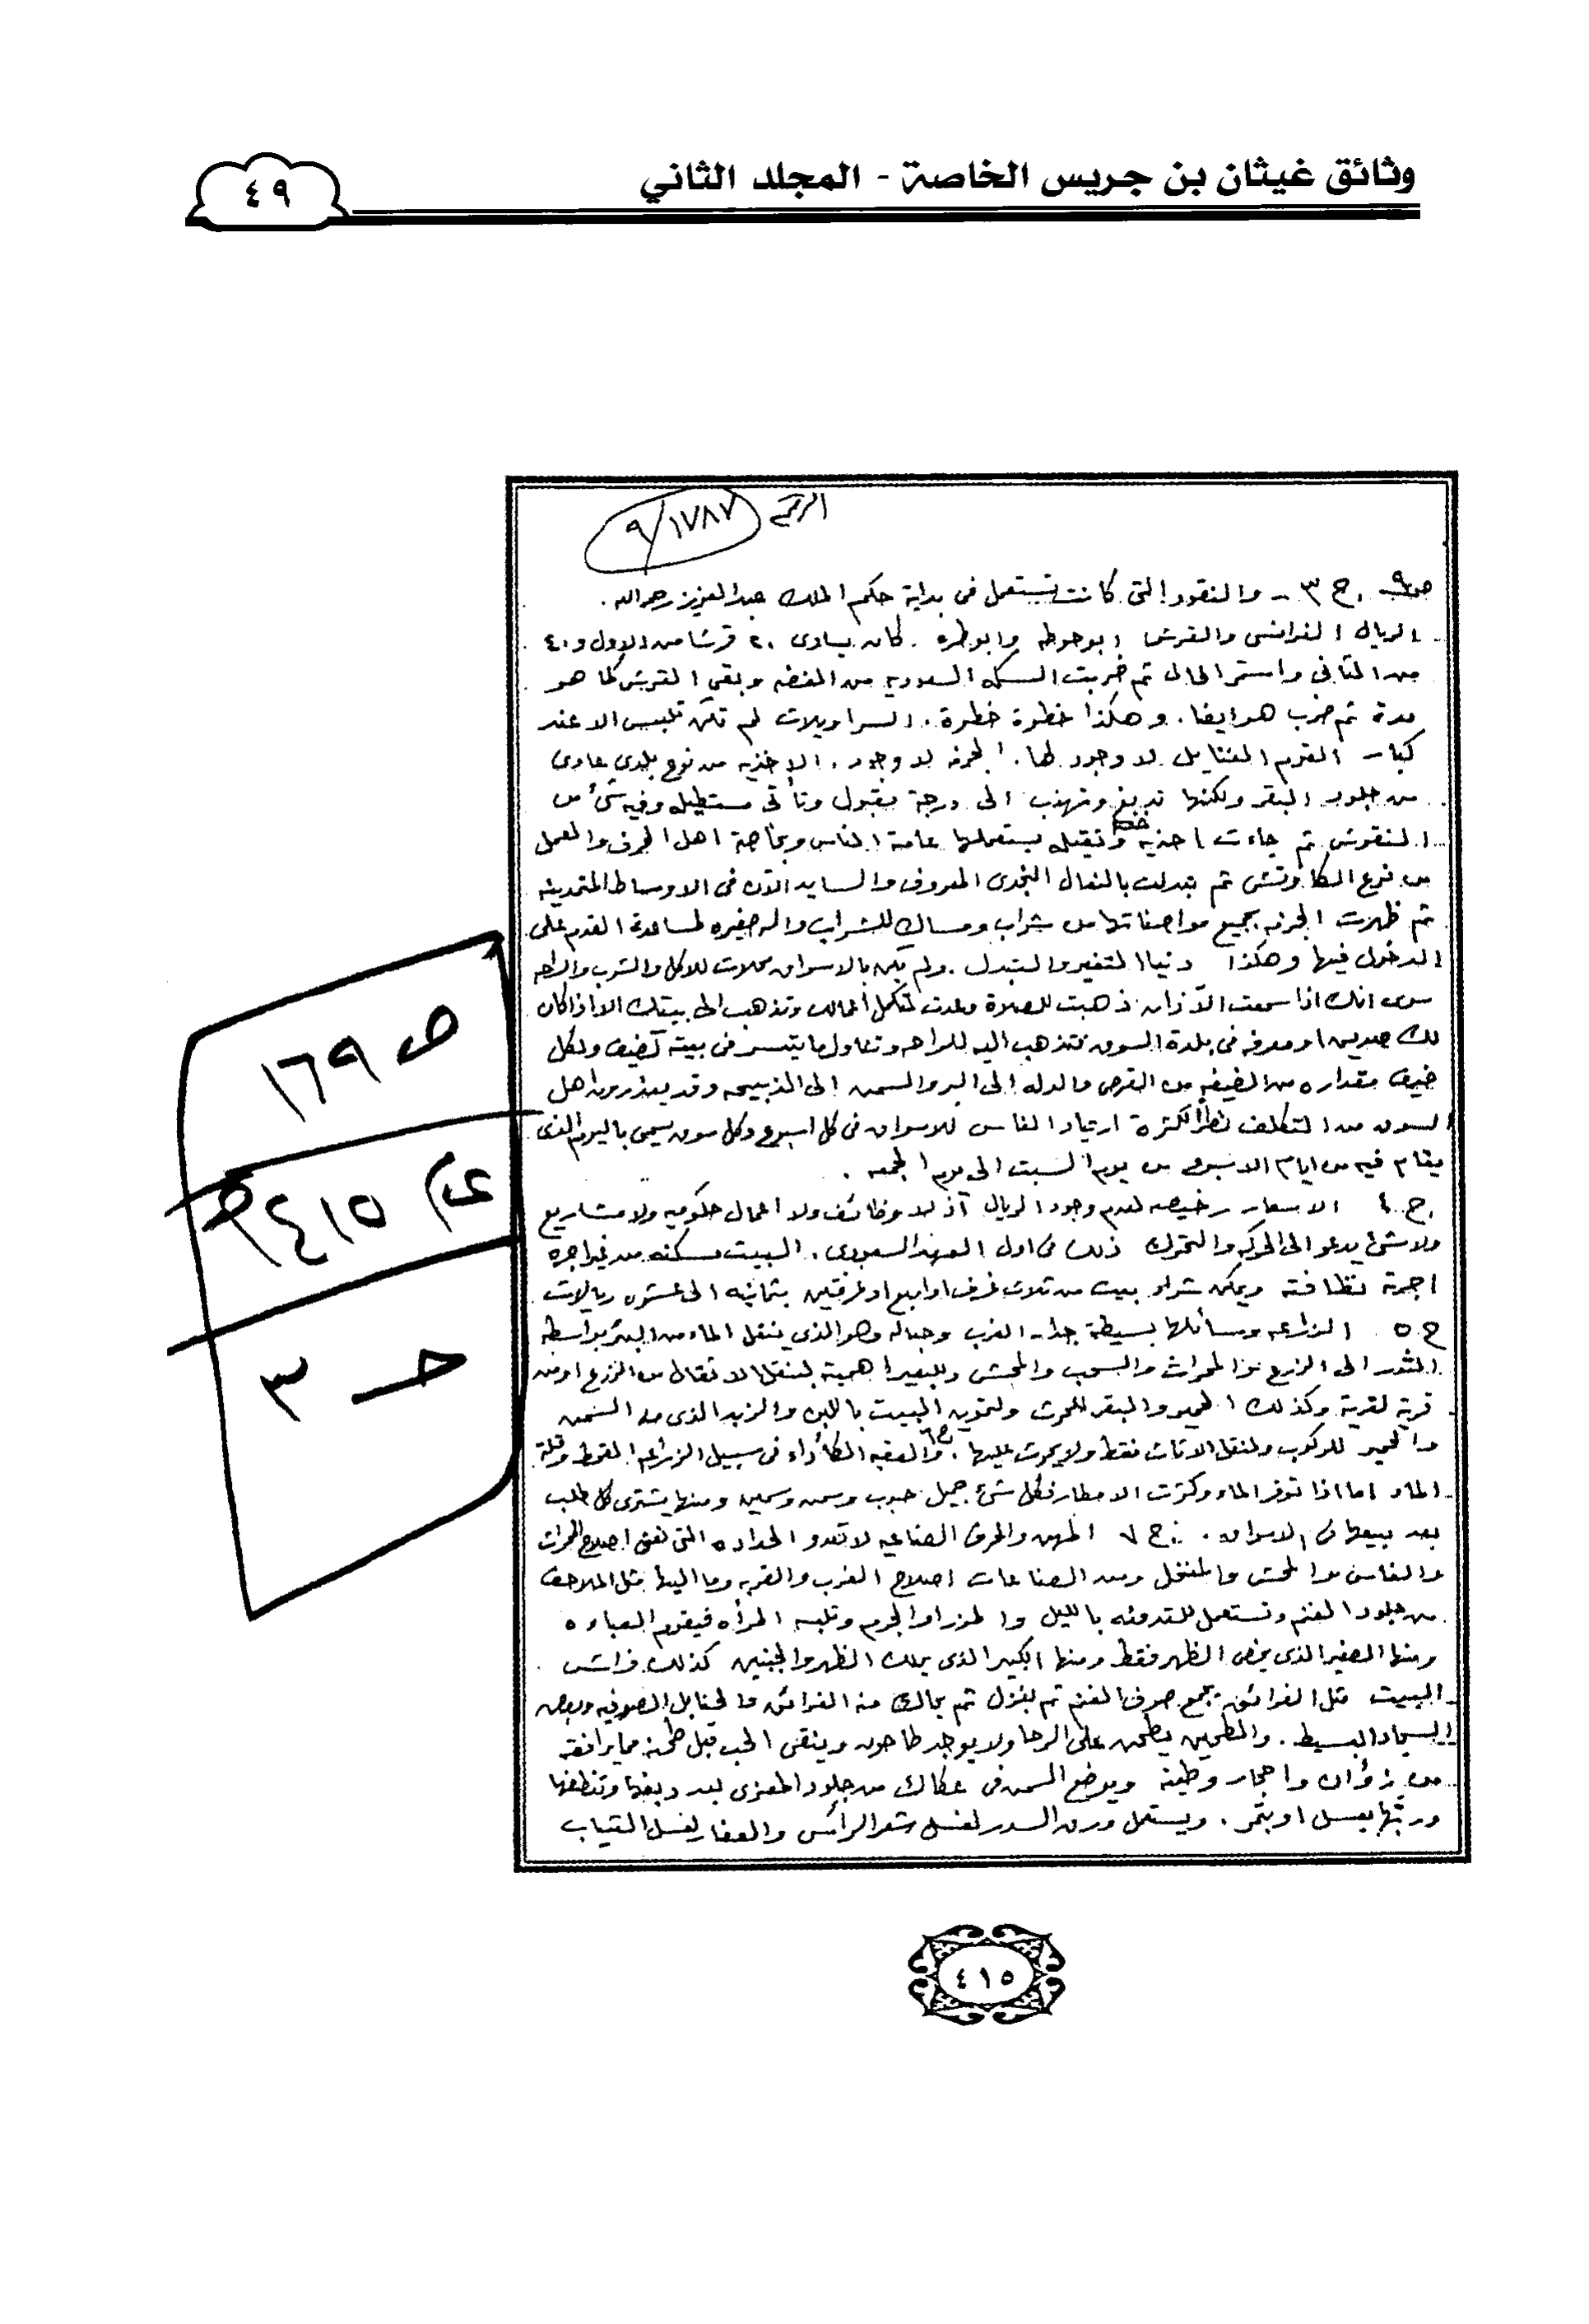 وثائق غيثان بن جريس الخاصة - المجلد الثاني
٤٩
الرقم ٩/١٧٨٧
ص٩ ، ج ٣ - والنقود التى كانت تستعمل فى بداية حكم الملك عبدالعزيز رحمه الله .
الريال الفرانسى والقرش ابو حوطه وابو طره . كان يساوى ٢٠ قرشا من الاول و ٤٠
من الثانى واستمر الحال ثم ضربت السكه السعوديه من الفضه وبقي القرش كما هو
مدة ثم ضرب هو ايضا . وهكذا خطوة خطوة . السراويلات لم تكن تلبس الا عند
كبار القوم الفنايل لا وجود لها . الجزمه لا وجود . الاحذيه من نوع بلدي عادى
من جلود البقر ولكنها تدبغ وتهذب الى درجة بقبول وتأتى مستطيله وفيه شئ من
النقوش ثم جاءت احذيه وثقيله يستعملها عامة الناس وبخاصة اهل الحرف والعمل
من نوع الكاوتش ثم تبدلت بالنعال النجدى المعروف والسايد الآن فى الاوساط المتمدينه
ثم ظهرت الجزمه بجميع مواصفاتها من شراب ومساك للشراب والـه صغيره لمساعدة القدم على
الدخول فيها وهكذا دنيا التغير والتبدل . ولم يكن بالاسواق محلات للاكل والشرب والراحه
سوى انك اذا سمعت الآذان ذهبت للصلاة وعدت لتكمل أعمالك وتذهب الى بيتك الا اذا كان
لك صديق او معرفه فى بلدة السوق فتذهب اليه للراحه وتناول ما يتيسر فى بيته كضيف ولكل
ضيف مقداره من الضيفه من القرص والدله الى البر والسمن الى الذبيحه وقد يعذر من اهل
السوق من التكلف نظراً لكثرة ارتياد الناس للاسواق فى كل اسبوع وكل سوق يسمى باليوم الذى
يقام فيه من ايام الاسبوع من يوم السبت الى يوم الجمعه .
ج ٤ الاسعار رخيصه لعدم وجود الريال آذ لا وظائف ولا اعمال حكوميه ولا مشاريع
ولا شئ يدعو الى الحركه والتحرك ذلك فى اول العهد السعودى . البيت مسكنه من غير اجره
اجرة نظافته ويمكن شراء بيت من ثلاث غرف او اربع او غرفتين بثمانيه الى عشره ريالات
ج ٥ الزراعه ومسائلها بسيطة جدا - الغرب وحباله وهو الذي ينقل الماء من البئر بواسطه
الثور الى الزرع والمحراث والسحب والمحش وللبعير اهمية لنقل الاثقال من الزرع او من
قرية لقرية وكذلك الحمير والبقر للحرث ولتموين البيت باللبن والزبد الذى منه السمن
والحمير للركوب ولنقل الاثاث فقط ولا يحرث عليها . ج٦ والعقبه الكأداء فى سبيل الزراعه القحط وقلة
الماء اما اذا توفر الماء وكثرت الامطار فكل شئ جميل حبوب وسمن وسمين ومنها يشترى كل طلب
بعد بيعها فى الاسواق . ج ٧ المهن والحرف الصناعيه لا تعدو الحداده التى تعنى اصلاح المحراث
والفاس والمحش والمنخل ومن الصناعات اصلاح الغرب والقربه وما اليها مثل الملاحف
من جلود الغنم وتستعمل للتدفئه بالليل والجرم وتلبسه المرأه فيقوم العباءه
ومنها الصغير الذى يخص الظهر فقط ومنها الكبير الذى يملك الظهر والجنبين كذلك فراش
البيت مثل الفرائق يجمع صوف الغنم ثم يغزل ثم يحاك منه الفرائق والحنابل الصوفيه وبعض
السجاد البسيط . والطحين يطحن على الرحا ولا يوجد طاحون وينقى الحب قبل طحنه مما يرافقه
من زؤان واحجار وطينه ويوضع السمن فى عكاك من جلود المعزى بعد دبغها وتنظفها
وربّها بعسل او بتمر . ويستعمل ورق السدر لغسل شعر الرأس والعفار لغسل الثياب
ص ١٦٩
عام ١٤١٥هـ
حـ ٣
٤١٥